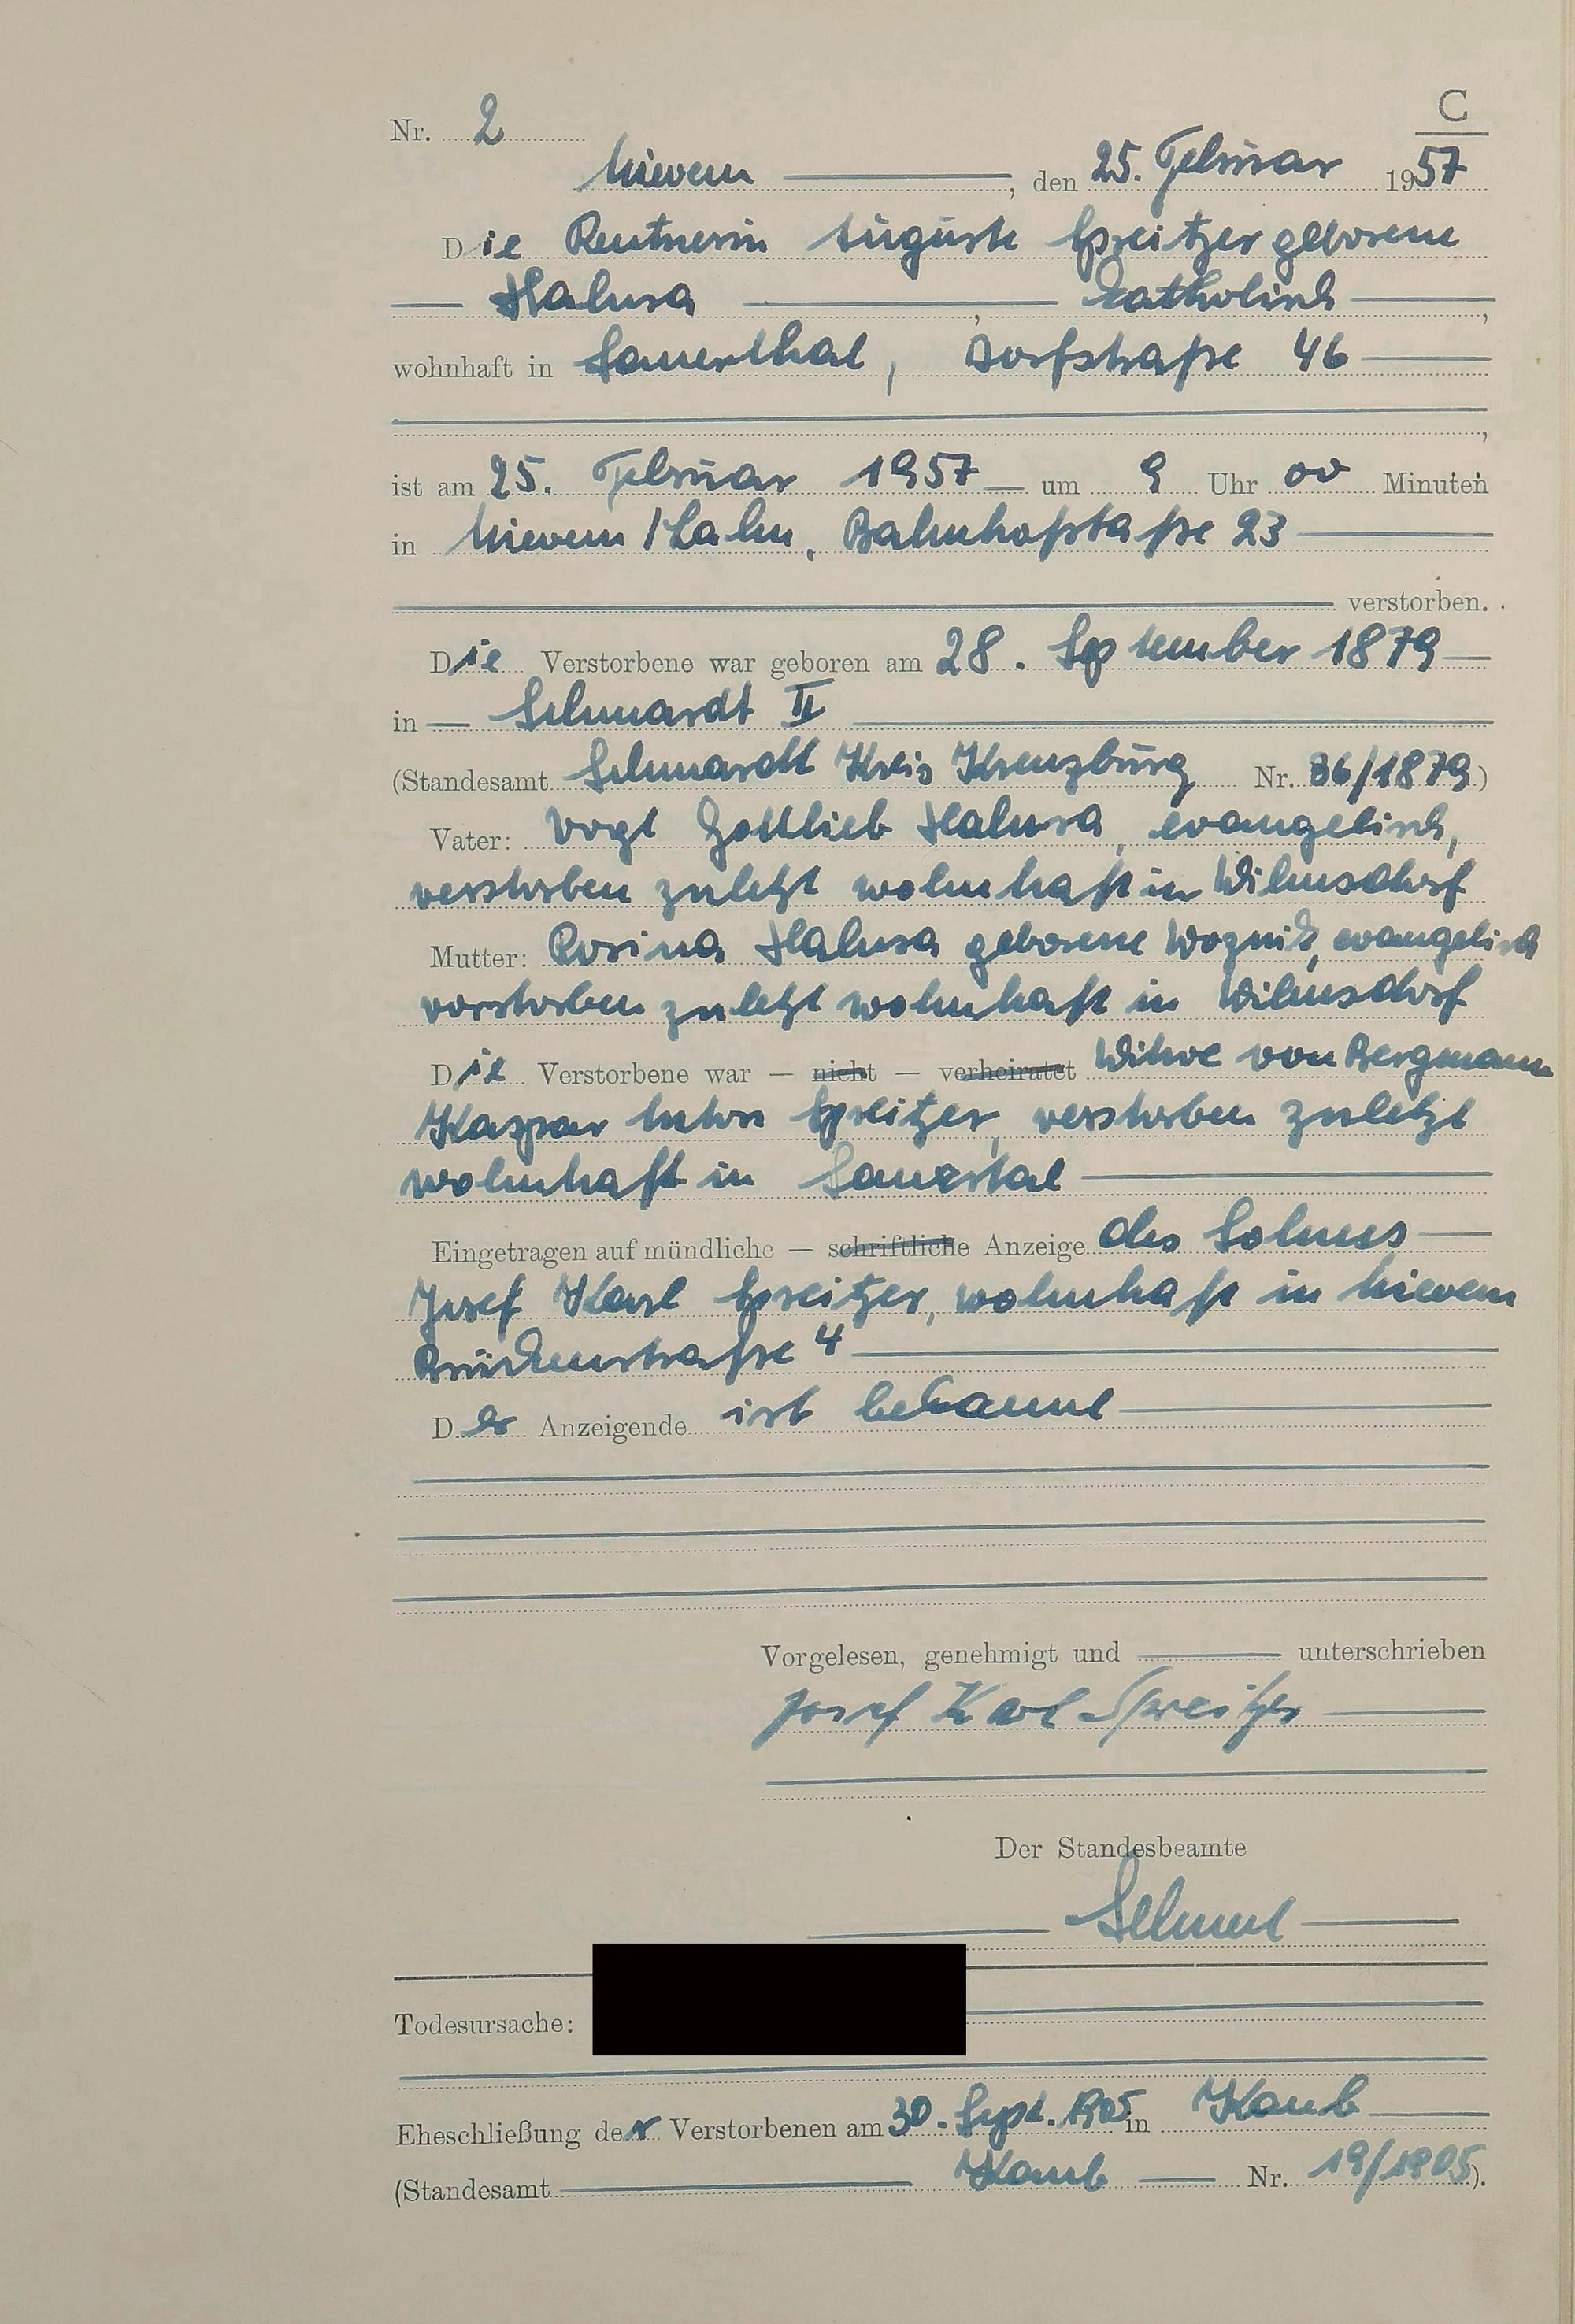 C
Nr. 2
Nievern, den 25. Februar 1957
Die Rentnerin Auguste Spreitzer geborene
Halusa, katholisch,
wohnhaft in Sauerthal, Dorfstraße 46
,
ist am 25. Februar 1957 um 9 Uhr 00 Minuten
in Nievern/Lahn, Bahnhofstraße 23
verstorben.
Die Verstorbene war geboren am 28. September 1879
in Schmardt II
(Standesamt Schmardt Kreis Kreuzburg Nr. 36/1879)
Vater: Vogt Gottlieb Halusa, evangelisch,
verstorben zuletzt wohnhaft in Wilmsdorf
Mutter: Rosina Halusa geborene Woznik, evangelisch
verstorben zuletzt wohnhaft in Wilmsdorf
Die Verstorbene war — nicht — verheiratet Witwe von Bergmann
Kaspar Anton Spreitzer, verstorben zuletzt
wohnhaft in Sauertal
Eingetragen auf mündliche — schriftliche Anzeige des Sohnes
Josef Karl Spreitzer, wohnhaft in Nievern
Brückenstraße 4
Der Anzeigende ist bekannt
Vorgelesen, genehmigt und unterschrieben
Josef Karl Spreitzer
Der Standesbeamte
Todesursache:
Eheschließung der Verstorbenen am 30. Sept. 1905 in Kaub
(Standesamt Kaub Nr. 19/1905).